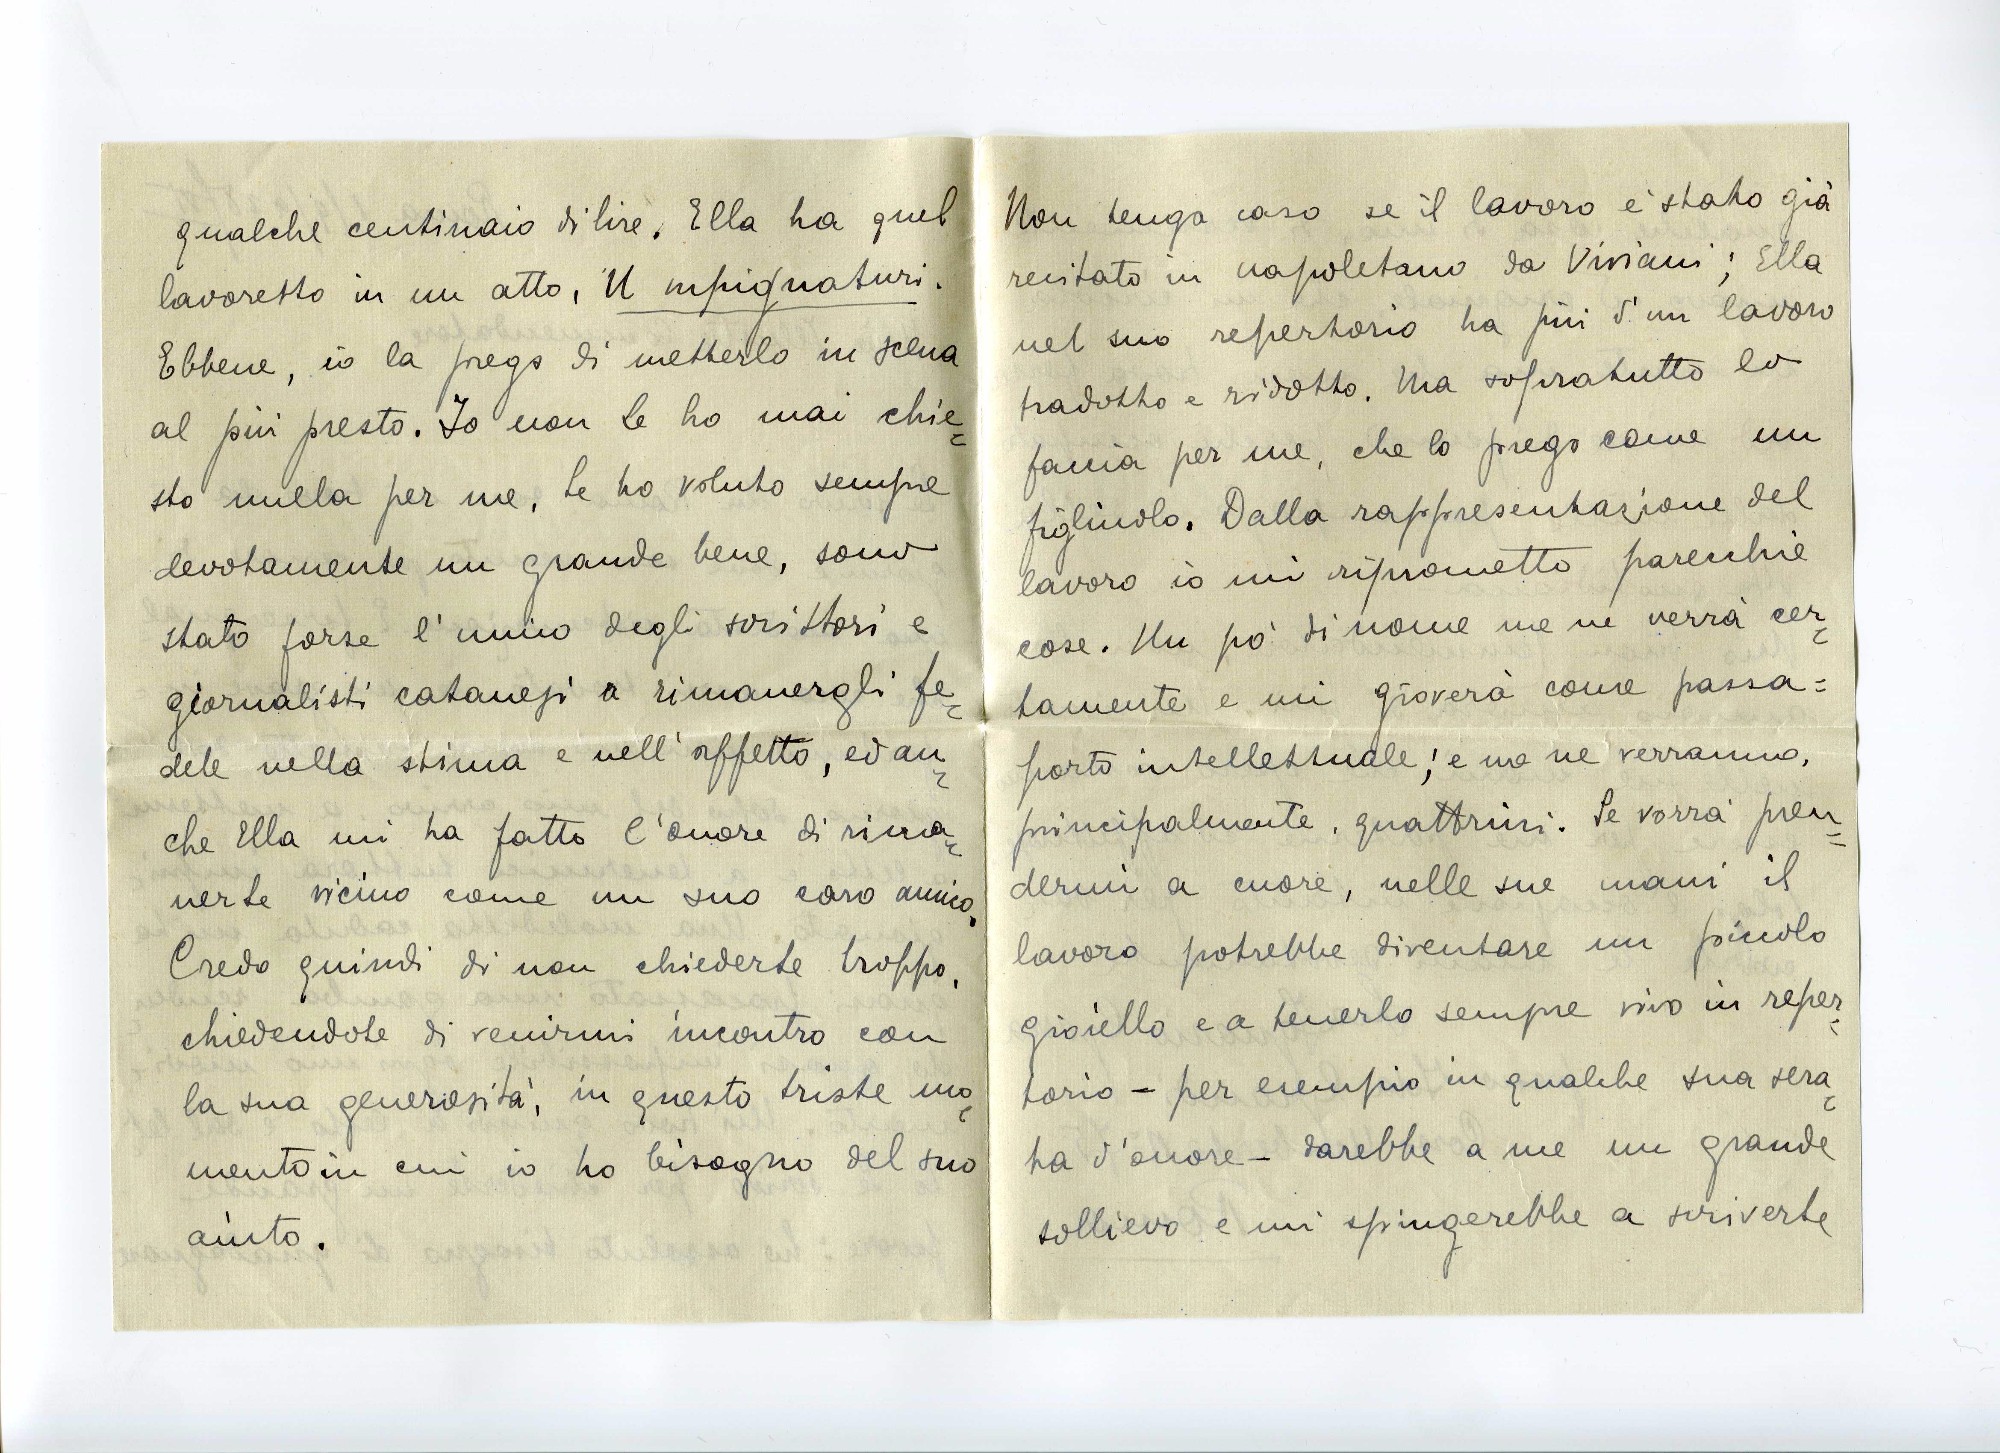 qualche centinaio di lire. Ella ha quel
lavoretto in un atto, U mpignaturi.
Ebbene, io la prego di metterlo in scena
al più presto. Io non Le ho mai chie=
sto nulla per me, Le ho voluto sempre
devotamente un grande bene, sono
stato forse l'unico degli scrittori e
giornalisti catanesi a rimanergli fe=
dele nella stima e nell'affetto, ed an=
che Ella mi ha fatto l'onore di rima=
nerle vicino come un suo caro amico.
Credo quindi di non chiederle troppo,
chiedendole di venirmi incontro con
la sua generosità, in questo triste mo=
mento in cui io ho bisogno del suo
aiuto.
Non tenga caso se il lavoro è stato già
recitato in napoletano da Viviani; Ella
nel suo repertorio ha più d'un lavoro
tradotto e ridotto. Ma sopratutto lo
faccia per me, che lo prego come un
figliuolo. Dalla rappresentazione del
lavoro io mi riprometto parecchie
cose. Un pò di nome me ne verrà cer=
tamente e mi gioverà come passa=
porto intellettuale; e me ne verranno,
principalmente, quattrini. Se vorrà pren=
dermi a cuore, nelle sue mani il
lavoro potrebbe diventare un piccolo
gioiello e a tenerlo sempre vivo in reper=
torio - per esempio in qualche sua sera=
ta d'onore - darebbe a me un grande
sollievo e mi spingerebbe a scriverle